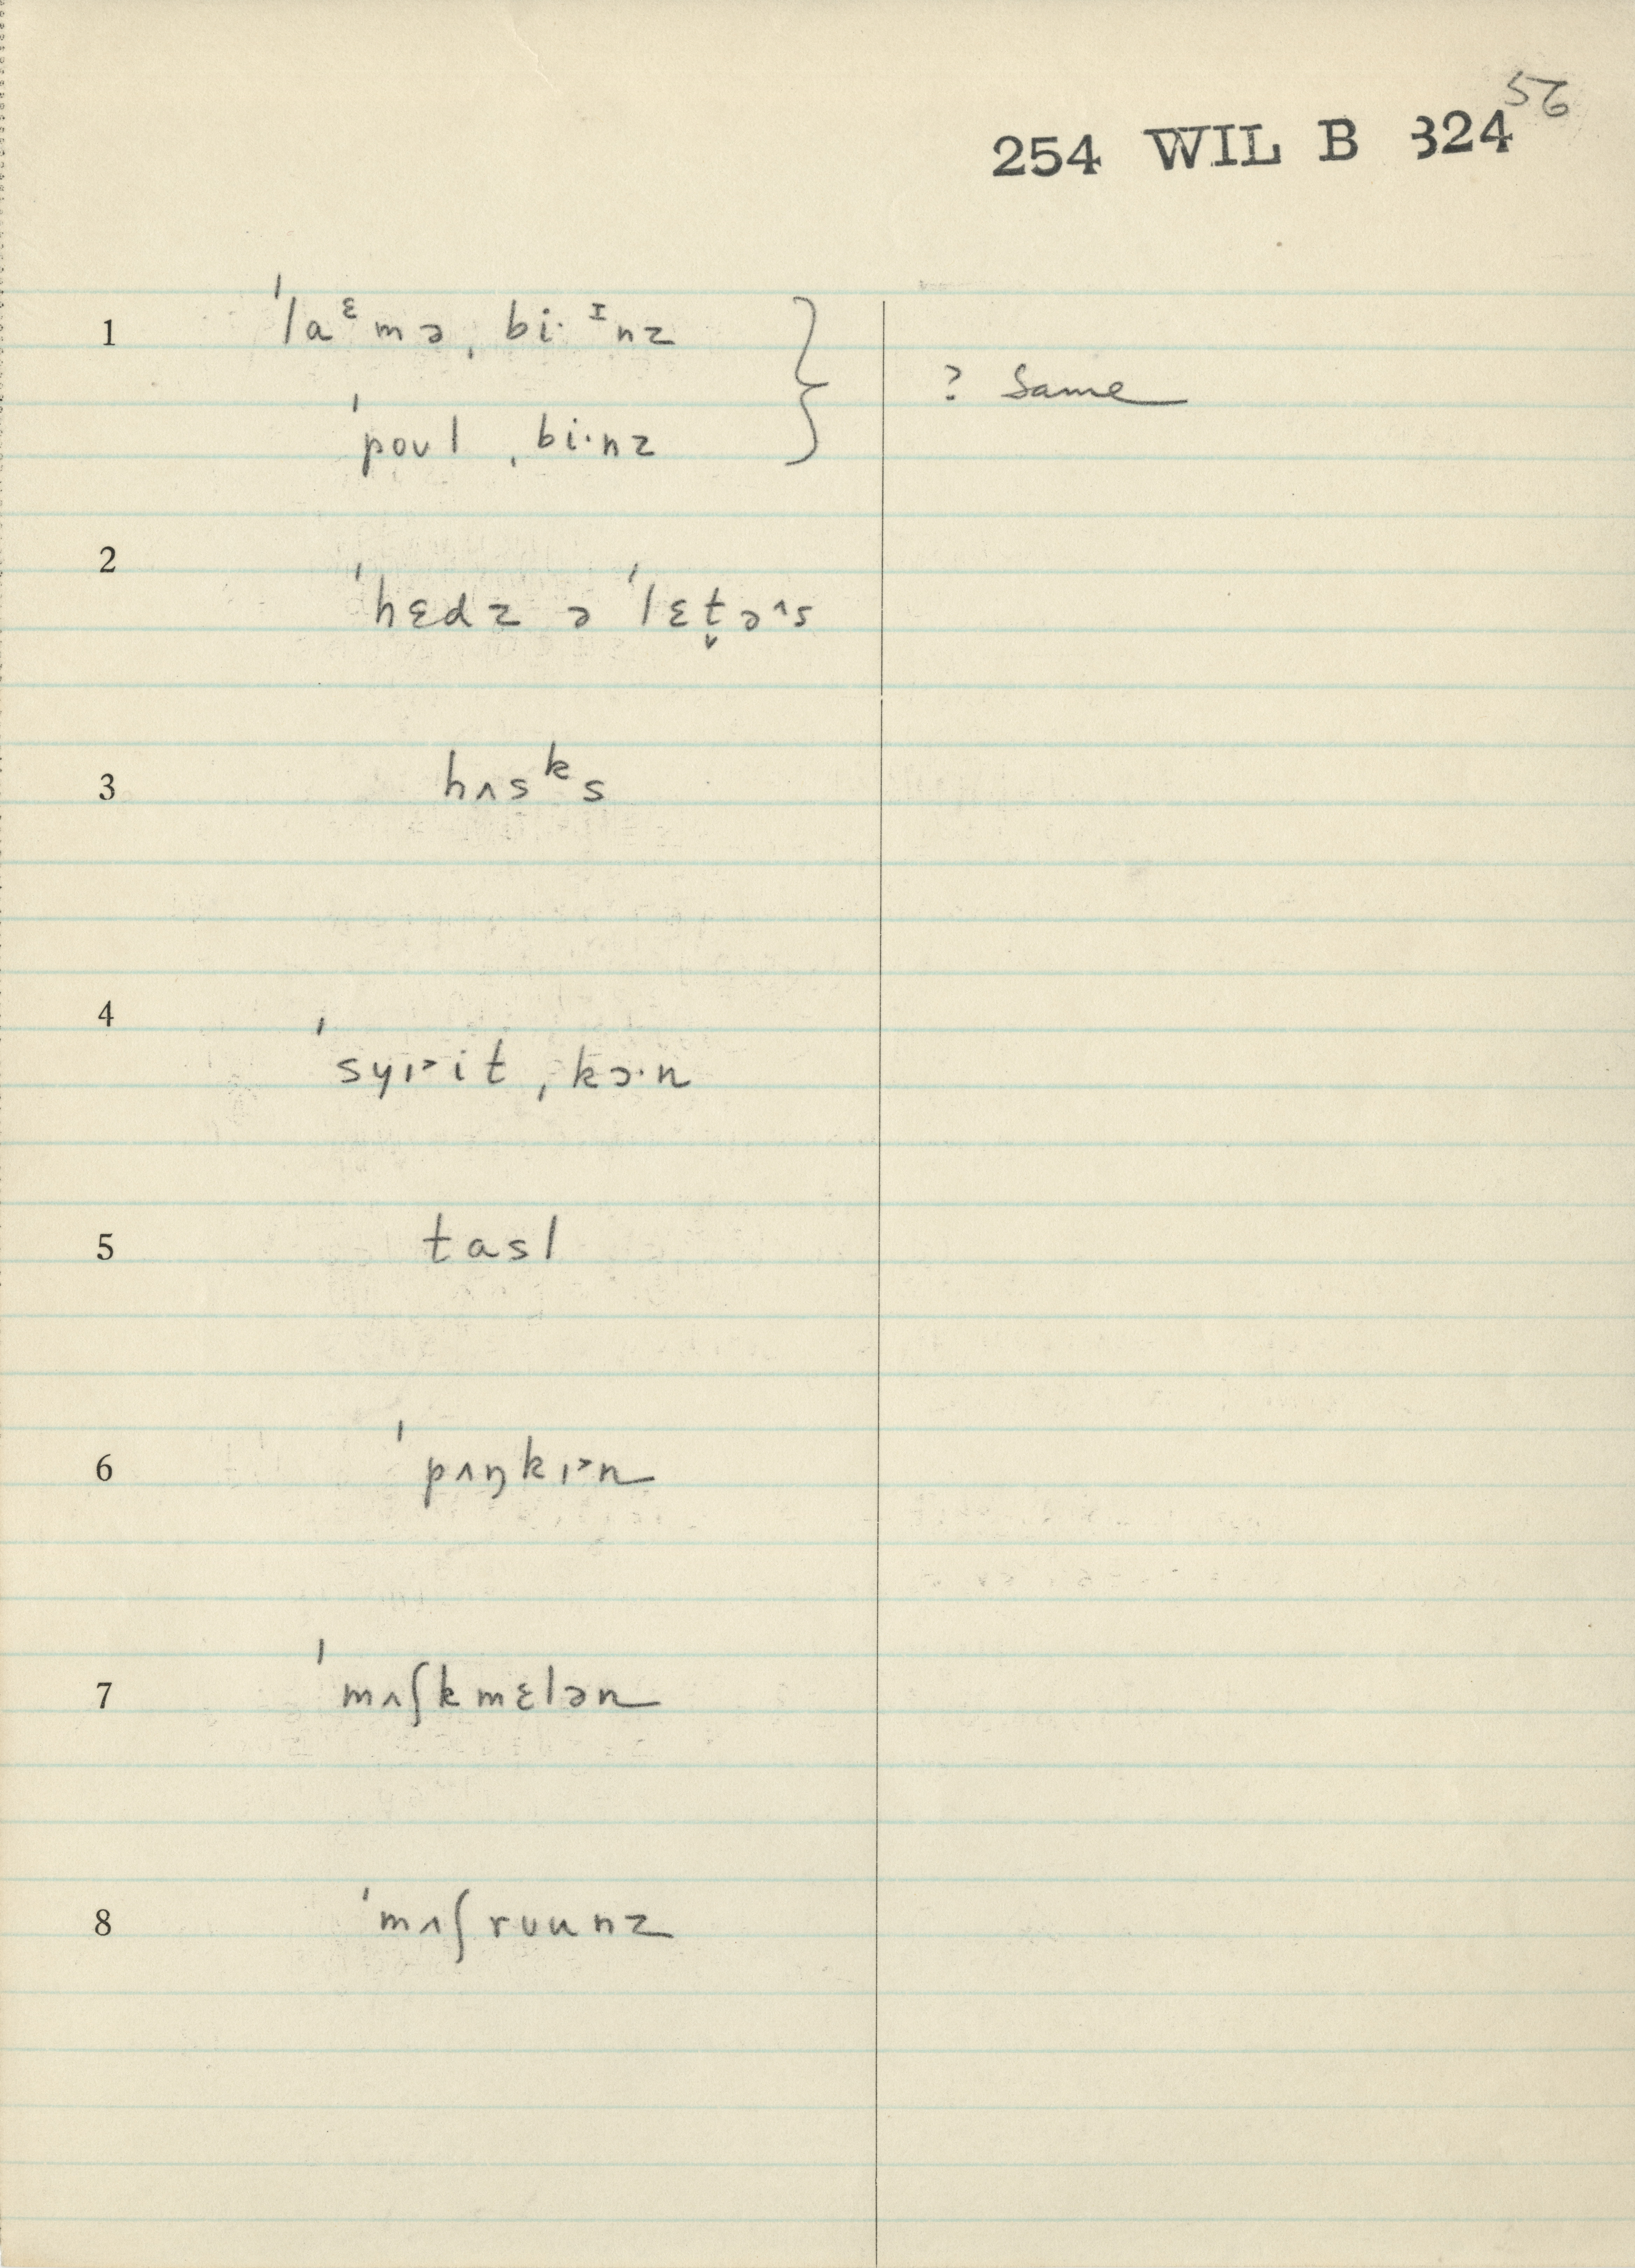 56
254 WIL B 324
1 ˈlaᵋmə ˌbi·ᶦnz } ? Same
ˈpoʊl ˌbi·nz
2 ˈhɛdz ə ˈlɛt̬ə˄s
3 hʌsᵏs
4 ˈsyɪ˃it ˌkɔ·n
5 tasl
6 ˈpʌŋkɪ˃n
7 ˈmʌʃkmɛlən
8 ˈmʌʃrʊunz